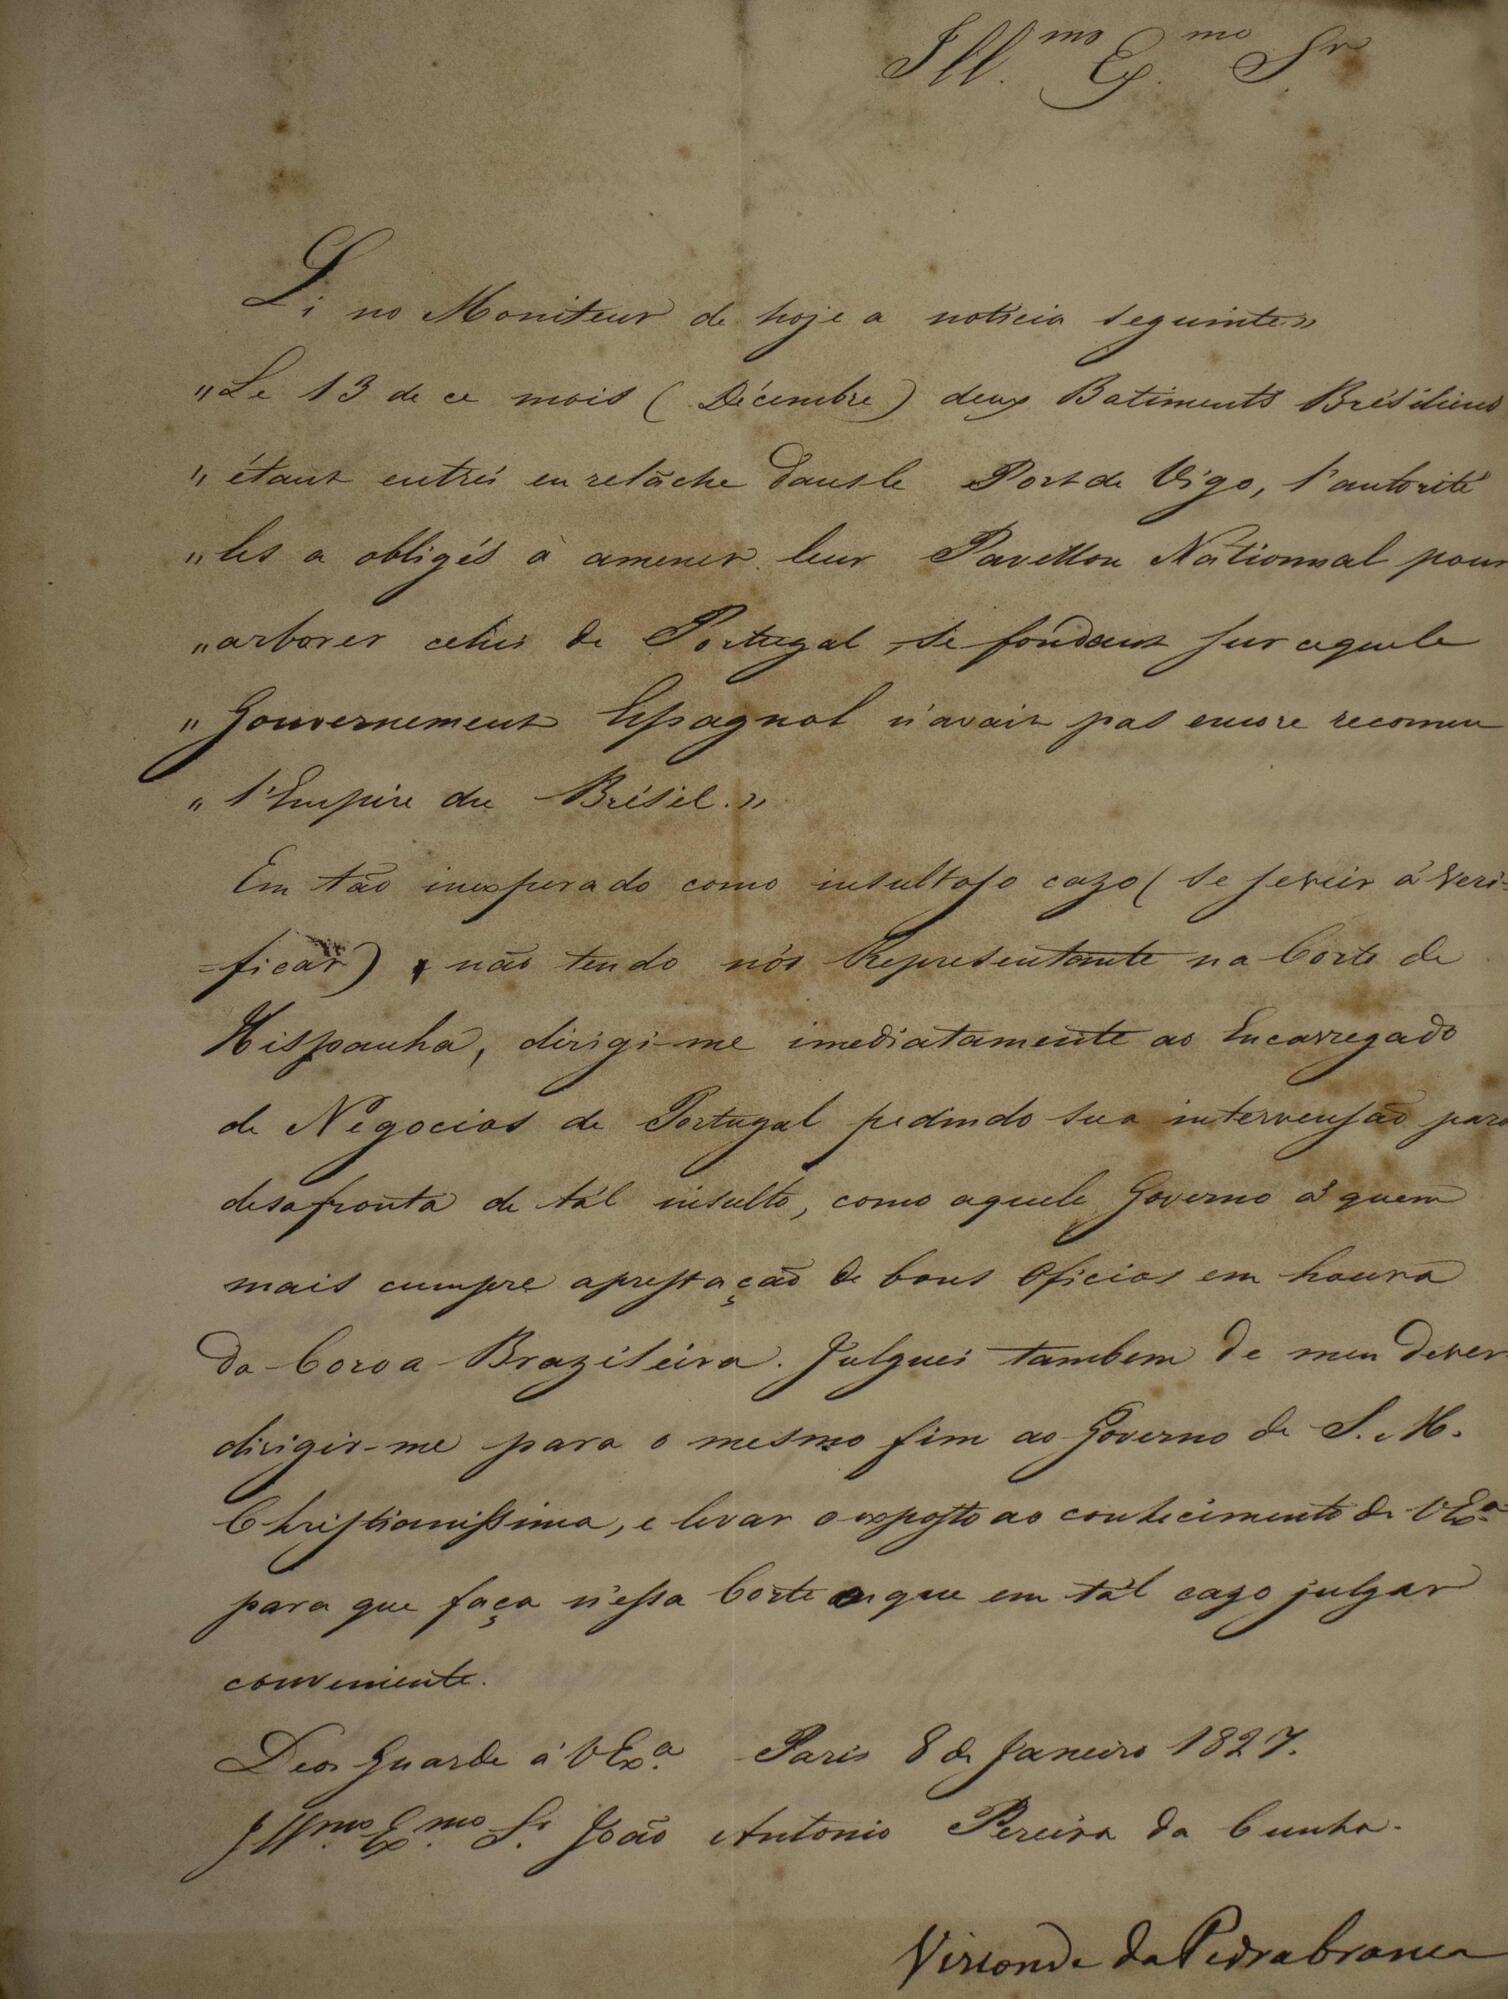 Ill.mo Ex.mo Sr
Li no Moniteur de hoje a noticia seguinte»
"Le 13 de ce mois (Décembre) deux Batiments Brésiliens
" étant entrés en relâche dans le Port de Vigo, l'autorité
" les a obligés à amener leur Pavellon Nationnal pour
" arborer celui de Portugal se fondant sur aquele
" Gouvernement Espagnol n'avait pas encore reconnu
" l'Empire du Brésil.»
Em tão inesperado como insultoso cazo (se seveir á veri-
-ficar) não tendo nós Representante na Corte de
Hispanha, dirigi-me imediatamente ao Encarregado
de Negocios de Portugal pedindo sua intervensão para
desafronta de tál insulto, como aquele Governo á quem
mais cumpre aprestação de bons Oficios em honra
da Coroa Brazileira. Julguei tambem de meu dever
dirigir-me para o mesmo fim ao Governo de S. M.
Christianissima, e levar o exposto ao conhecimento de VEx.a
para que faça n'essa Corte o que em tál cazo julgar
conveniente.
Deos Guarde á VEx.a Paris 8 de Janeiro 1827.
Ill.mo Ex.mo Sr. João Antonio Pereira da Cunha.
Visconde da Pedrabranca